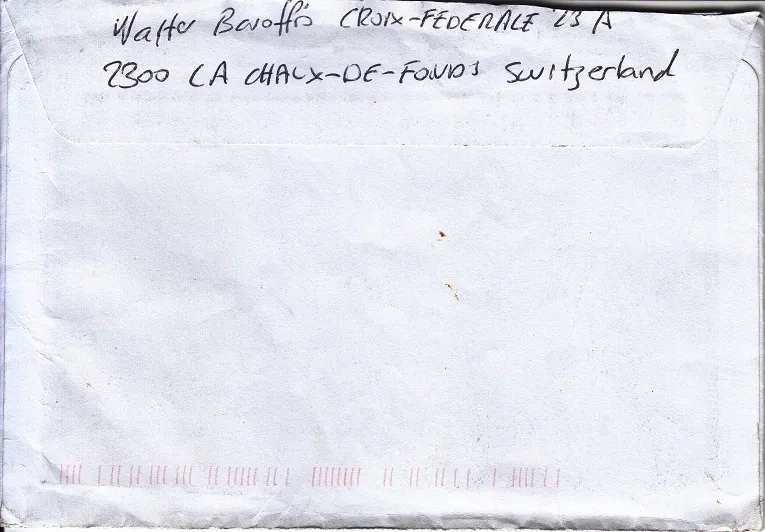 Walter Baroffio CROIX-FEDERALE 23 A
2300 LA CHAUX-DE-FONDS Switzerland